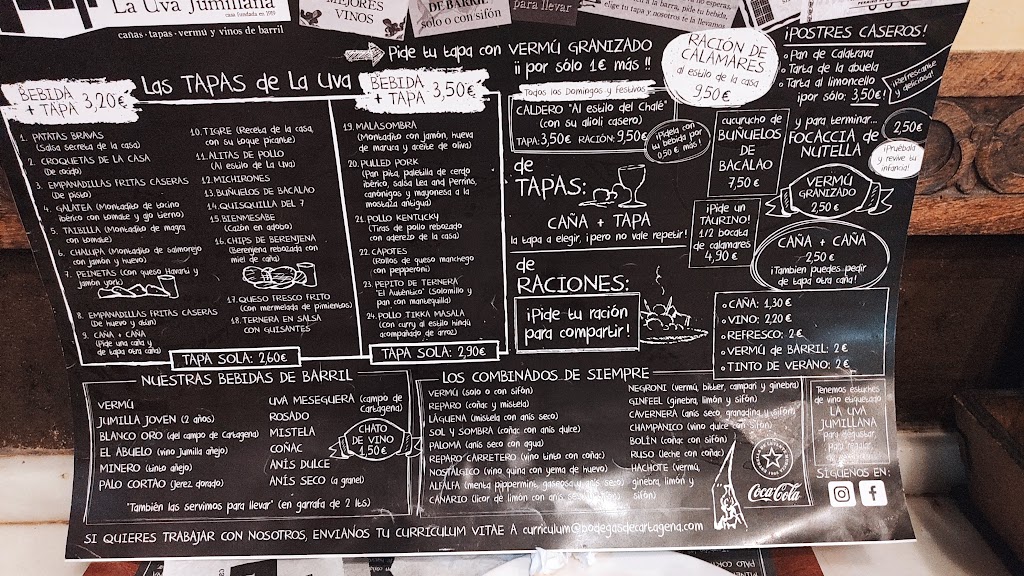 La Uva Jumillana
casa fundada en
cañas · tapas · vermú y vinos de barril
MEJORES
VINOS
DE BARRIL
solo o con sifón
para llevar
a la barra, pide tu bebida,
elige tu tapa y nosotros te la llevamos
Pide tu tapa con VERMÚ GRANIZADO
¡¡ por sólo 1€ más !!
BEBIDA
+ TAPA 3,20€
Las TAPAS de La Uva
BEBIDA
+ TAPA 3,50€
1. PATATAS BRAVAS
(Salsa secreta de la casa)
2. CROQUETAS DE LA CASA
(De cocido)
3. EMPANADILLAS FRITAS CASERAS
(De pisto)
4. GALATEA (Montadito de tocino
ibérico con tomate y ajo tierno)
5. TAIBILLA (Montadito de magra
con tomate)
6. CHALUPA (Montadito de salmorejo
con jamón y huevo)
7. PEINETAS (Con queso Havarti y
jamón york)
8. EMPANADILLAS FRITAS CASERAS
(De huevo y atún)
9. CAÑA + CAÑA
(Pide una caña y
de tapa otra caña)
10. TIGRE (Receta de la casa,
con su toque picante)
11. ALITAS DE POLLO
(Al estilo de La Uva)
12. MICHIRONES
13. BUÑUELOS DE BACALAO
14. QUISQUILLA DEL 7
15. BIENMESABE
(Cazón en adobo)
16. CHIPS DE BERENJENA
(Berenjena rebozada con
miel de caña)
17. QUESO FRESCO FRITO
(Con mermelada de pimientos)
18. TERNERA EN SALSA
CON GUISANTES
TAPA SOLA: 2,60€
19. MALASOMBRA
(Montadito con jamón, hueva
de maruca y aceite de oliva)
20. PULLED PORK
(Pan pita, paletilla de cerdo
ibérico, salsa Lea and Perrins,
canónigos y mayonesa a la
mostaza antigua)
21. POLLO KENTUCKY
(Tiras de pollo rebozado
con aderezo de la casa)
22. CAPOTES
(Rollos de queso manchego
con pepperoni)
23. PEPITO DE TERNERA
"El Auténtico" (Solomillo y
pan con mantequilla)
24. POLLO TIKKA MASALA
(Con curry al estilo hindú
acompañado de arroz)
TAPA SOLA: 2,90€
Todos los Domingos y Festivos
CALDERO "Al estilo del Chalé"
(con su alioli casero)
TAPA: 3,50€ RACIÓN: 9,50€
¡Pídela con
tu bebida por
0,50 € más!
RACIÓN DE
CALAMARES
al estilo de la casa
9,50€
cucurucho de
BUÑUELOS
DE
BACALAO
7,50 €
¡POSTRES CASEROS!
• Pan de Calatrava
• Tarta de la abuela
• Tarta al limoncello
¡por sólo: 3,50€!
¡Refrescante
y deliciosa!
y para terminar...
FOCACCIA de
NUTELLA
2,50€
¡Pruébala
y revive tu
infancia!
de
TAPAS:
CAÑA + TAPA
la tapa a elegir, ¡pero no vale repetir!
¡Pide un
TAURINO!
1/2 bocata
de calamares
4,90 €
VERMÚ
GRANIZADO
2,50 €
CAÑA + CAÑA
2,50 €
¡También puedes pedir
de tapa otra caña!
de
RACIONES:
¡Pide tu ración
para compartir!
• CAÑA: 1,30 €
• VINO: 2,20 €
• REFRESCO: 2 €
• VERMÚ de BARRIL: 2 €
• TINTO DE VERANO: 2 €
NUESTRAS BEBIDAS DE BARRIL
VERMÚ
JUMILLA JOVEN (2 años)
BLANCO ORO (del campo de Cartagena)
EL ABUELO (vino Jumilla añejo)
MINERO (tinto añejo)
PALO CORTAO (Jerez dorado)
UVA MESEGUERA (campo de
Cartagena)
ROSADO
MISTELA
COÑAC
ANÍS DULCE
ANÍS SECO (a granel)
CHATO
DE VINO
1,50€
"También las servimos para llevar" (en garrafa de 2 lts)
LOS COMBINADOS DE SIEMPRE
VERMÚ (solo o con sifón)
REPARO (coñac y mistela)
LÁGUENA (mistela con anís seco)
SOL Y SOMBRA (coñac con anís dulce)
PALOMA (anís seco con agua)
REPARO CARRETERO (vino tinto con coñac)
NOSTÁLGICO (vino quina con yema de huevo)
ALFALFA (menta pippermint, gaseosa y anís seco)
CANARIO (licor de limón con anís seco
NEGRONI (vermú, bitter, campari y ginebra)
GINFEEL (ginebra, limón y sifón)
CAVERNERA (anís seco, granadina y sifón)
CHAMPANICO (vino dulce con sifón)
BOLÍN (coñac con sifón)
RUSO (leche con coñac)
HACHOTE (vermú,
ginebra, limón y
sifón)
Coca-Cola
Tenemos estuches
de vino etiquetado
LA UVA
JUMILLANA
para degustar,
para regalar
SÍGUENOS EN:
SI QUIERES TRABAJAR CON NOSOTROS, ENVIANOS TU CURRICULUM VITAE A curriculum@bodegasdecartagena.com